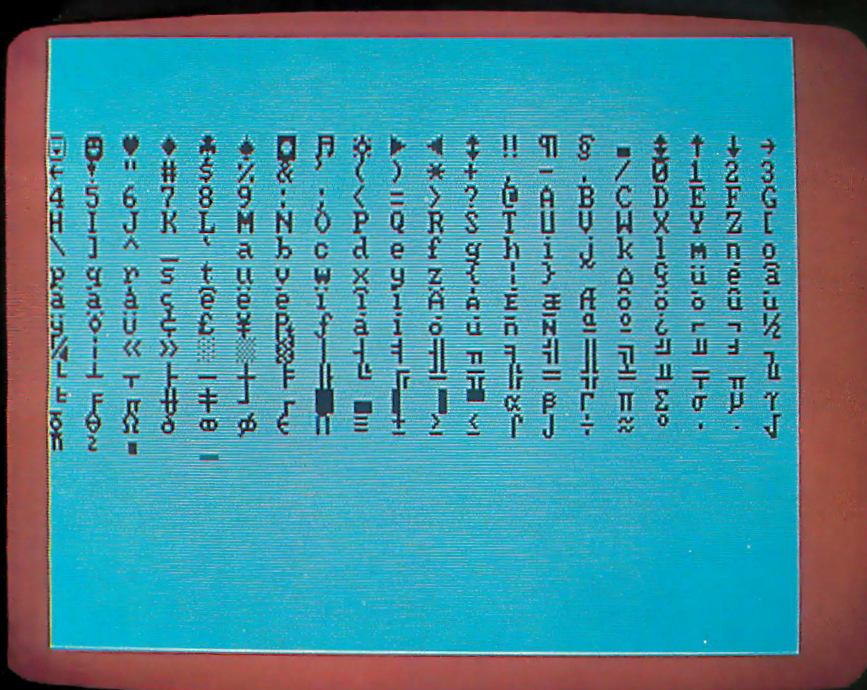 ☺ ☻ ♥ ♦ ♣ ♠ ◘ ♫ ☼ ► ◄ ↕ ‼ ¶ § ▬ ↨ ↑ ↓ →
! " # $ % & ' ( ) * + , - . / 0 1 2 3
4 5 6 7 8 9 : ; < = > ? @ A B C D E F G
H I J K L M N O P Q R S T U V W X Y Z [
\ ] ^ _ ` a b c d e f g h i j k l m n o
p q r s t u v w x y z { | } ~ ⌂ Ç ü é â
ä à å ç ê ë è ï î ì Ä Å É æ Æ ô ö ò û ù
ÿ Ö Ü ¢ £ ¥ ₧ ƒ á í ó ú ñ Ñ ª º ¿ ⌐ ¬ ½
¼ ¡ « » ░ ▒ ▓ │ ┤ ╡ ╢ ╖ ╕ ╣ ║ ╗ ╝ ╜ ╛ ┐
└ ┴ ┬ ├ ─ ┼ ╞ ╟ ╚ ╔ ╩ ╦ ╠ ═ ╬ ╧ ╨ ╤ ╥ ╙
╘ ╒ ╓ ╫ ╪ ┘ ┌ █ ▄ ▌ ▐ ▀ α ß Γ π Σ σ µ τ
Φ Θ Ω δ ∞ φ ε ∩ ≡ ± ≥ ≤ ⌠ ⌡ ÷ ≈ ° ∙ · √
ⁿ ² ■ _